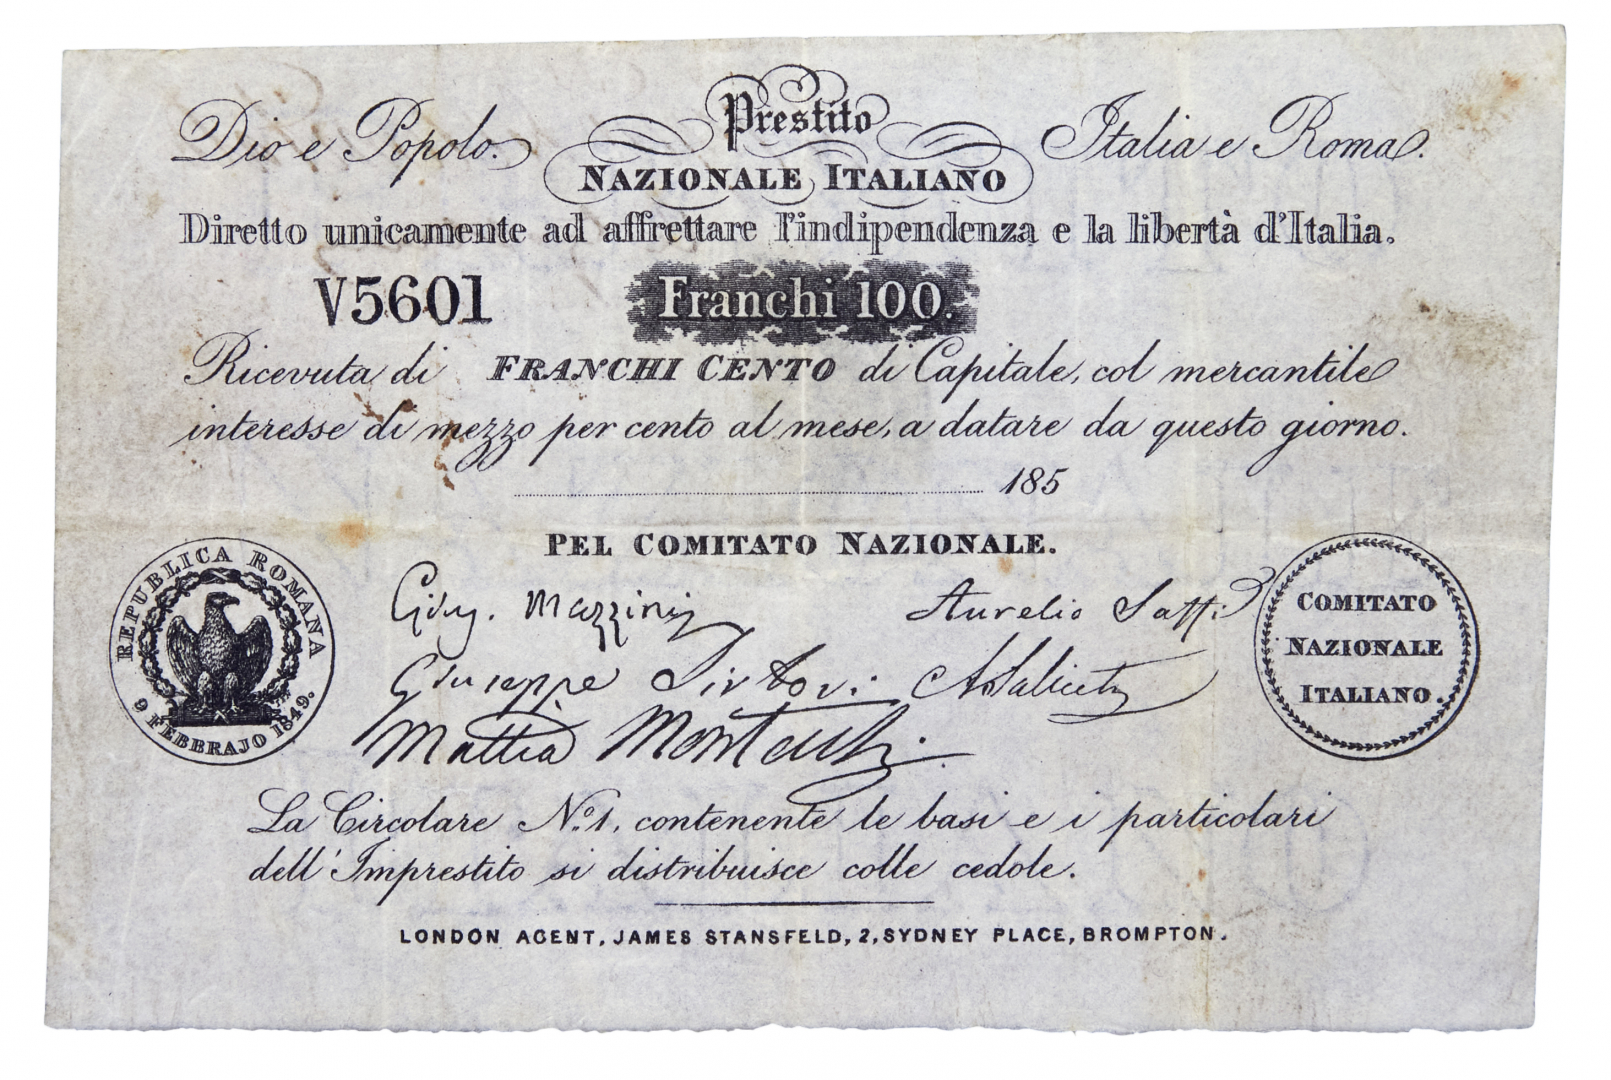 Dio e Popolo. Prestito Italia e Roma.
NAZIONALE ITALIANO
Diretto unicamente ad affrettare l'indipendenza e la libertà d'Italia.
V5601 Franchi 100.
Ricevuta di FRANCHI CENTO di Capitale, col mercantile
interesse di mezzo per cento al mese, a datare da questo giorno.
185
PEL COMITATO NAZIONALE.
REPUBLICA ROMANA
9 FEBBRAJO 1849.
Gius. Mazzini Aurelio Saffi
Giuseppe Sirtori A Saliceti
Mattia Montecchi.
COMITATO
NAZIONALE
ITALIANO.
La Circolare No. 1, contenente le basi e i particolari
dell'Imprestito si distribuisce colle cedole.
LONDON AGENT, JAMES STANSFELD, 2, SYDNEY PLACE, BROMPTON.